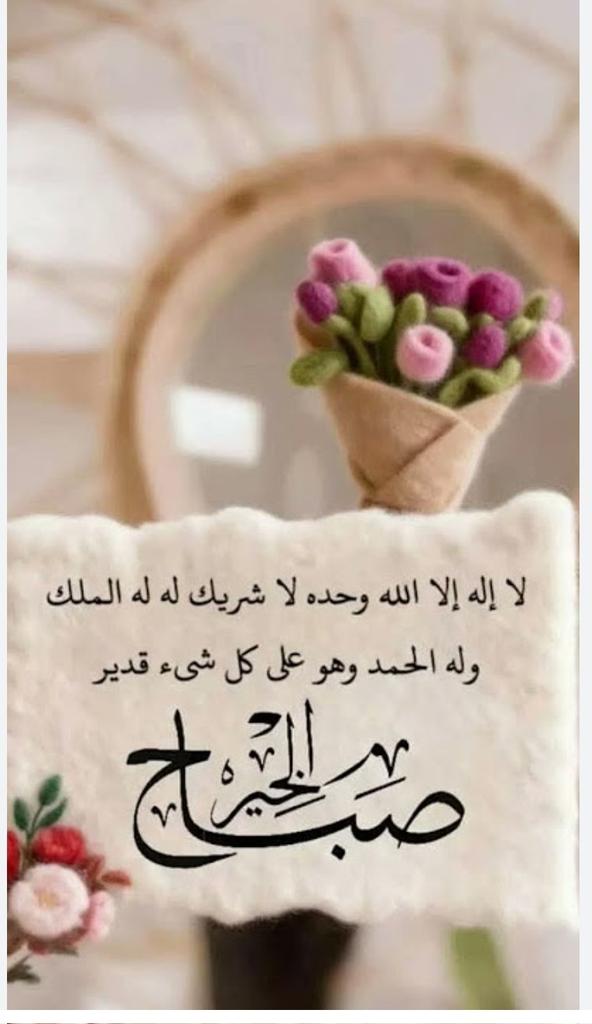 لا إله إلا الله وحده لا شريك له له الملك
وله الحمد وهو على كل شىء قدير
صباح الخير